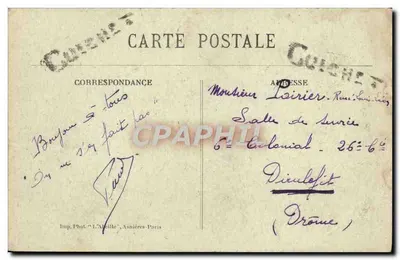 GUICHET
CARTE POSTALE
GUICHET
CORRESPONDANCE
ADRESSE
Bonjour à tous
On ne s'en fait pas"
Monsieur Poirier
Salle de
6e Colonial 26e Cie
Dieulefit
(Drôme)
CPARAMA
Imp. Phot. "L'Abeille", Asnières-Paris